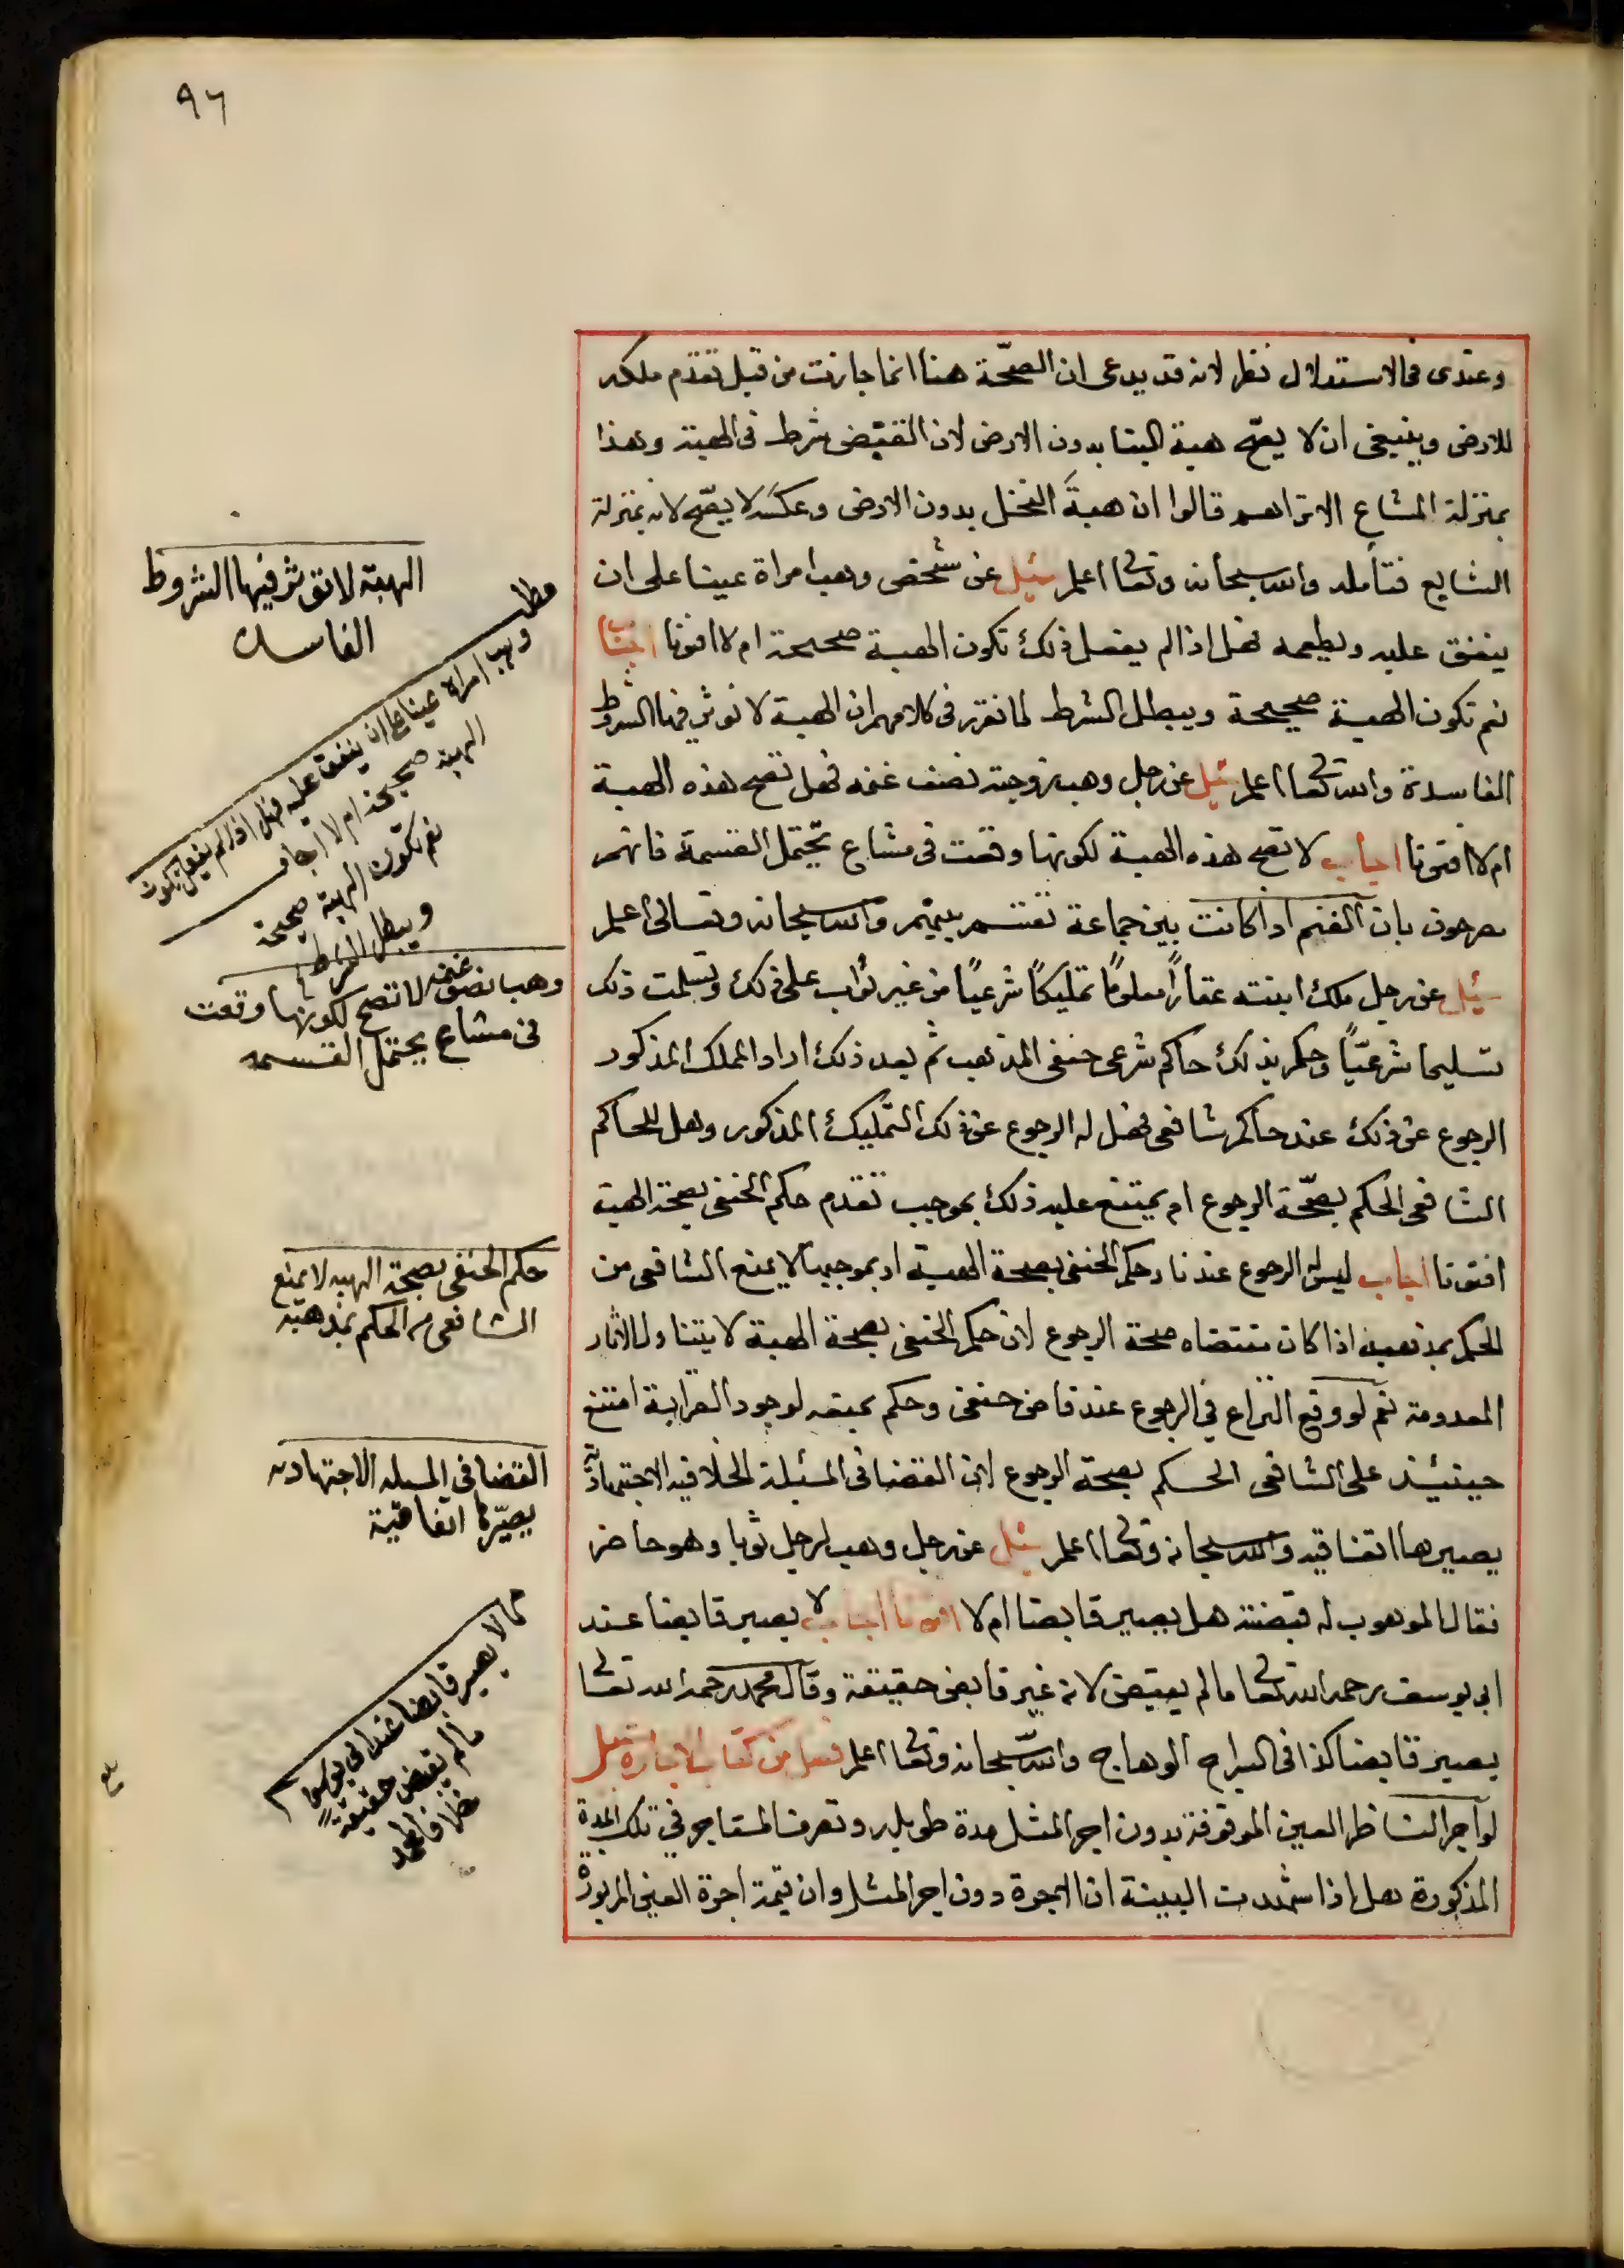 ٩٦
وعندى فى الاستدلال نظر لانه قد يدعى ان الصحّة هنا انما جازت من قبل تقدم ملكه
للارض وينبغى ان لا يصح هبة البنا بدون الارض لان القبض شرط فى الهبة وهذا
بمنزلة المشاع الا ترى انهم قالوا ان هبةَ النخل بدون الارض وعكسَه لا يصّح لانه بمنزلة
الشايع فتأمله والله سبحانه وتعالى اعلم سئل عن شخص وهب امراة عينا على ان
ينفق عليه ويطعمه فهل اذا لم يفعل ذلك تكون الهبة صحيحة ام لا افتونا اجاب
نعم تكون الهبة صحيحة ويبطل الشرط لما تقرر فى كلامهم ان الهبة لا تؤثر فيها الشروط
الفاسدة والله تعالى اعلم سئل عن رجل وهب زوجته نصف غنمه فهل تصح هذه الهبة
ام لا افتونا اجاب لا تصح هذه الهبة لكونها وقعت فى مشاع تحتمل القسمة فانهم
صرحون بان الغنم اذا كانت بين جماعة تقتسم بينهم والله سبحانه وتعالى اعلم
سئل عن رجل ملك ابنته عقاراً معلومًا تمليكًا شرعيًا من غير ثواب على ذلك وتسلمت ذلك
تسليما شرعيّاً وحكم بذلك حاكم شرعى حنفى المذهب ثم بعد ذلك اراد المملك المذكور
الرجوع عن ذلك عند حاكم شافعى فهل له الرجوع عن ذلك التمليك المذكور وهل للحاكم
الشافعى الحكم بصحّة الرجوع ام يمتنع عليه ذلك بموجب تقدم حكم الحنفى بصحة الهبة
افتونا اجاب ليس له الرجوع عندنا وحكم الحنفى بصحة الهبة او بموجبها لا يمنع الشافعى من
الحكم بمذهبه اذا كان مقتضاه صحة الرجوع لان حكم الحنفى بصحة الهبة لا يتناول الاثار
المعدومة نعم لو وقع النزاع في الرجوع عند قاض حنفى وحكم بمنعه لوجود القرابة امتنع
حينئذ على الشافعى الحكم بصحة الرجوع لان القضا فى المسئلة الخلافيه الاجتهاديّة
يصيرها اتفاقيه والله سبحانه وتعالى اعلم سئل عن رجل وهب لرجل ثوبا وهو حاضر
فقال الموهوب له قبضته هل يصير قابضا ام لا افتونا اجاب لا يصير قابضا عند
ابى يوسف رحمه الله تعالى ما لم يقبض لانه غير قابض حقيقة وقال محمد رحمه الله تعالى
يصير قابضا كذا فى السراج الوهاج والله سبحانه وتعالى اعلم فصل من كتاب الاجارة سئل
لو آجر الناظر العين الموقوفة بدون اجر المثل مدة طويله وتصرف المستاجر في تلك المدة
المذكورة هل اذا شهدت البينة ان الاجرة دون اجر المثل وان قيمة اجرة العين المزبورة
الهبة لا تؤثر فيها الشروط
الفاسده
مطلب
وهب امراة عينا على ان ينفق عليه فهل اذا لم يفعل تكون
الهبة صحيحة ام لا اجاب
نعم تكون الهبة صحيحة
ويبطل الشرط
وهب نصف غنمه لا تصح لكونها وقعت
فى مشاع يحتمل القسمه
حكم الحنفى بصحة الهبه لا يمنع
الشافعى من الحكم بمذهبه
القضا فى المسله الاجتهاديه
يصيّرها اتفاقية
لا يصير قابضا عند ابى يوسف
ما لم يقبض حقيقةً
خلافا لمحمد
بلغ